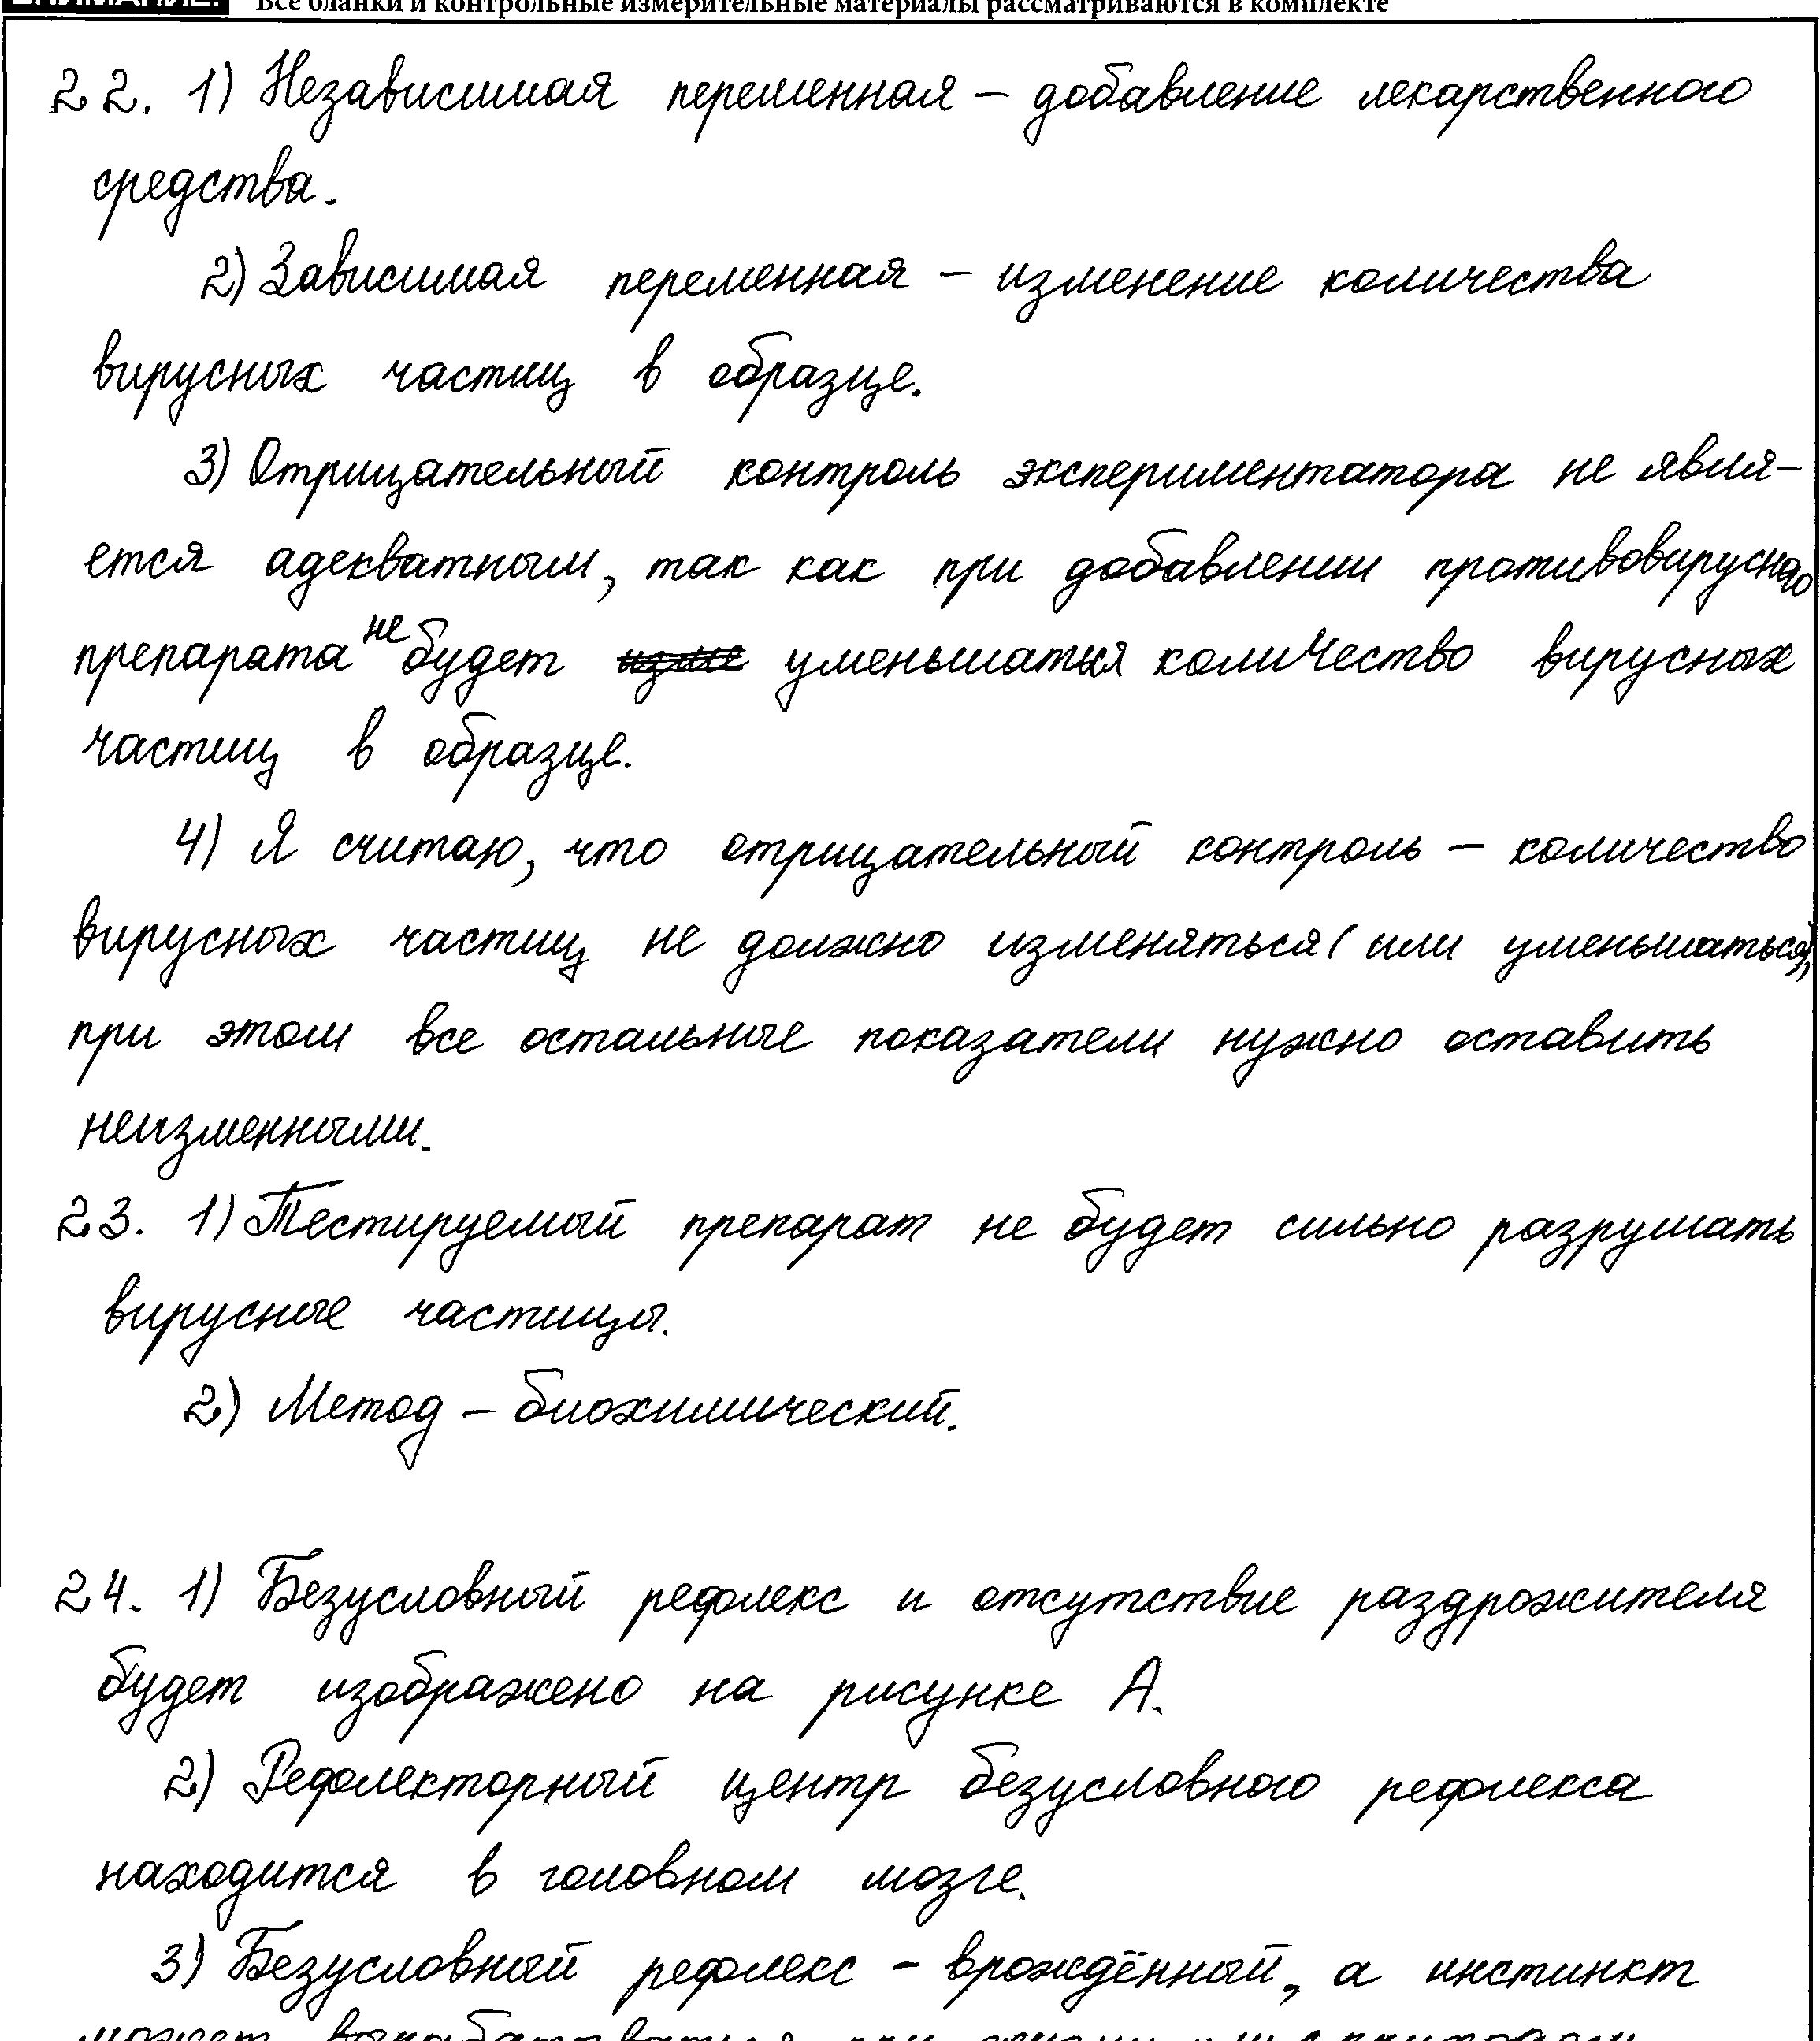 ВНИМАНИЕ! Все бланки и контрольные измерительные материалы рассматриваются в комплекте
22. 1) Независимая переменная – добавление лекарственного
средства.
2) Зависимая переменная – изменение количества
вирусных частиц в образце.
3) Отрицательный контроль экспериментатора не явля-
ется адекватным, так как при добавлении противовирусного
препарата не будет уменьшаться количество вирусных
частиц в образце.
4) Я считаю, что отрицательный контроль – количество
вирусных частиц не должно изменяться (или уменьшаться),
при этом все остальные показатели нужно оставить
неизменными.
23. 1) Тестируемый препарат не будет сильно разрушать
вирусные частицы.
2) Метод – биохимический.
24. 1) Безусловный рефлекс и отсутствие раздрожителя
будет изображено на рисунке А.
2) Рефлекторный центр безусловного рефлекса
находится в головном мозге.
3) Безусловный рефлекс – врождённый, а инстинкт
может вырабатываться при